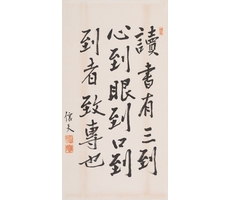 讀書有三到
心到眼到口到
到者致專也